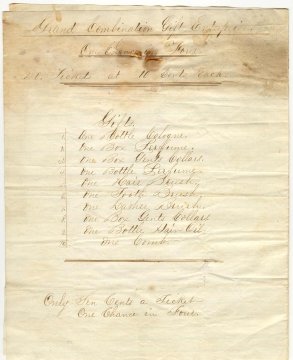 Grand Combination Gift Enterprise
One Chance in Four
20 Tickets at 10 Cents Each
Gifts.
1. One Bottle Cologne
2. One Box Perfume.
3. One Box Gents Collars.
4. One Bottle Perfume
5. One Hair Brush
6. One Tooth Brush
7. One Brush
8. One Box Gents Collars
9. One Bottle Hair Oil
10. One Comb
Only Ten Cents a Ticket
One Chance in Four